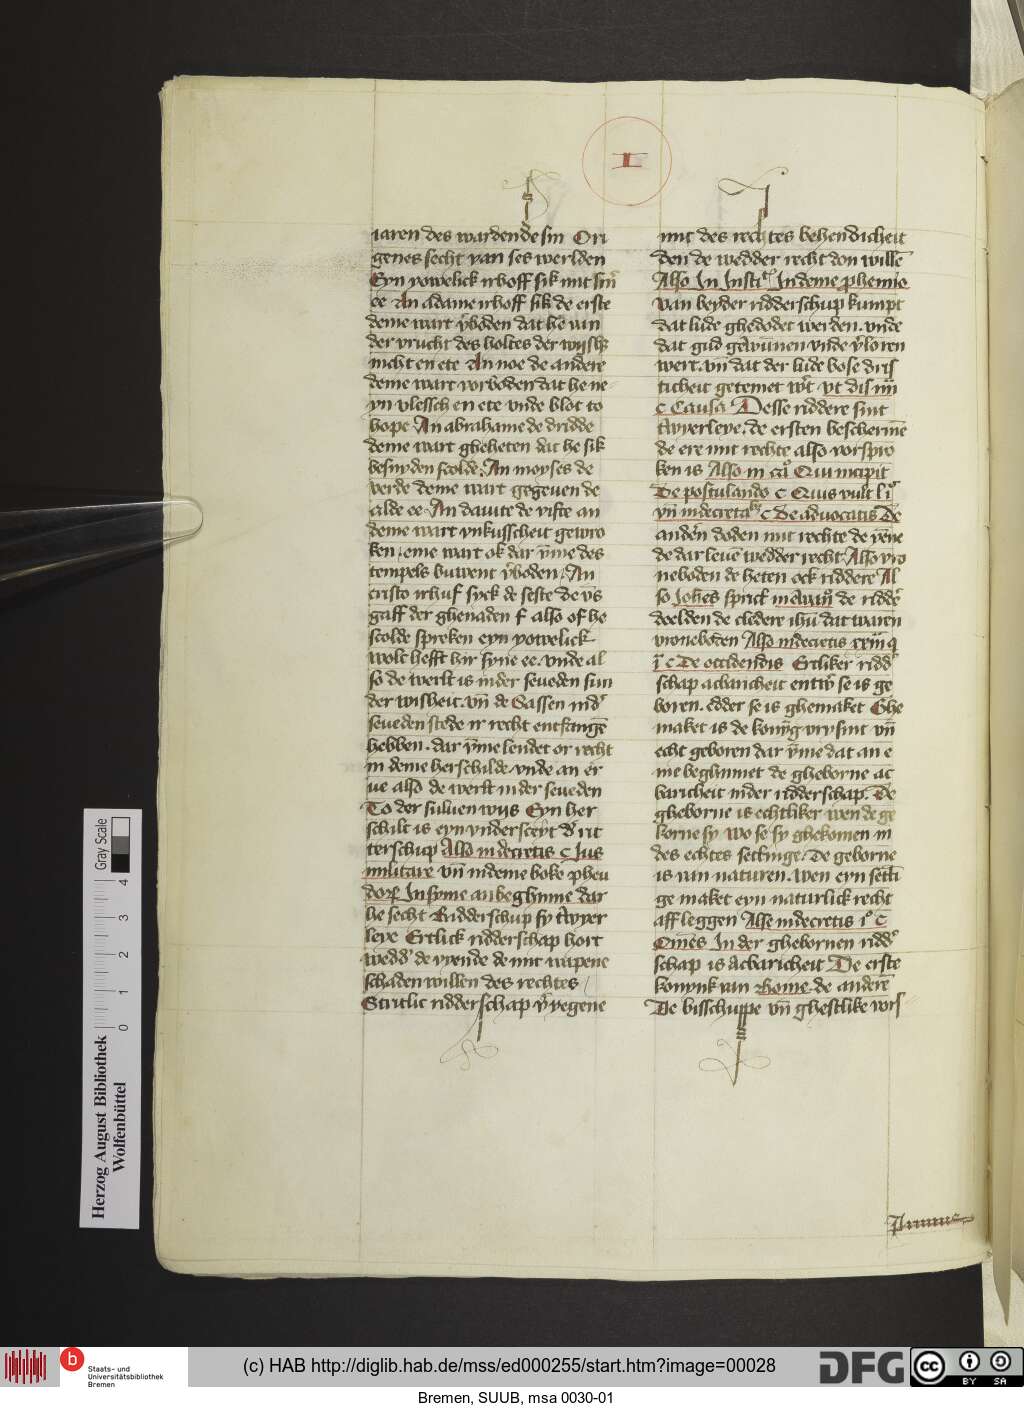 I
iaren des warden de sin Ori
genes secht van ses werlden
Eyn yowelick irhoff sik mit sin̄
ee An adame irhoff sik de erste
deme wart v̓boden dat he van
der vrucht des holtes der wijsh
nicht en ete An noe de andere
deme wart vorboden dat he ne
yn vlessch en ete vnde blot to
hope An abrahame de dridde
deme wart gheheten dat he sik
besnyden scolde. An moyses de
verde deme wart gegeuen de
alde ee An dauite de vifte an
deme wart vnkusscheit gewro
ken. eme wart ok dar v̄me des
tempels buwent v̓boden. An
cristo irhuf syck de seste de vns
gaff der ghenaden f also of he
scolde spreken eyn yowelick
wolt hefft hir syne ee. vnde al
so de werlt is inder seueden sun
der wisheit. vn̄ de Sassen ind̓
seueden stede ir recht entfangē
hebben. dar v̄me lendet or recht
in deme herschilde vnde an er
ue also de werlt in der seueden
To der suluen wijs Eyn her
schilt is eyn vnderscheyt d̓ rit
terschup Also in decretis c Jus
militare vn̄ in deme boke pheu
dor Jn syme anbeghinne dar
he secht Ridderschup sy twyer
leye Ertlick ridderschap hort
wedd̓ de vyende de mit wapene
schaden willen des rechtes
Stritlic ridderschap v̓ yegene
mit des rechtes behendicheit
den de wedder recht don willē
Also Jn Jnsti Jn deme phemio
van beyder ridderschup kumpt
dat lude ghedodet werden. vnde
dat gud gewunnen vnde v̓loren
wert. vn̄ dat der lude bose dris
ticheit getemet w̓t vt dis iiii
c Causa Desse riddere sint
twyerleye. de ersten beschermē
de ere mit rechte also vorspro
ken is Also in Qui incipit
De postulando c Quis vult
vn̄ in decreta c De aduocatis De
anderē doden mit rechte de yēne
de dar leuē wedder recht. Also vro
neboden de heten ock riddere Al
so Johes sprict de ridder
deelden de cledere ihu dat waren
vroneboden Also in decretis xxiii q
c De occidendis Ertliker ridd̓
schap acbaricheit entw̓ se is ge
boren. edder se is ghemaket Ghe
maket is de konyg vry sint vn̄
echt geboren dar v̄me dat an e
me beghinnet de gheborne ac
baricheit in der ridderschap. De
gheborne is echtliker wen de ge
korne sy wo se sy ghekomen in
des echtes settinge. De geborne
is van naturen. wen eyn settī
ge maket eyn naturlick recht
aff leggen Alse in decretis c̄
Om̄es Jn der ghebornen ridd̓
schap is Acbaricheit De erste
konynk van Rome. de anderē
De bisschuppe vn̄ ghestlike vors
Herzog August Bibliothek
Wolfenbüttel
0 1 2 3 4
Gray Scale
b
Staats- und
Universitätsbibliothek
Bremen
(c) HAB http://diglib.hab.de/mss/ed000255/start.htm?image=00028
DFG
cc
BY SA
Bremen, SUUB, msa 0030-01